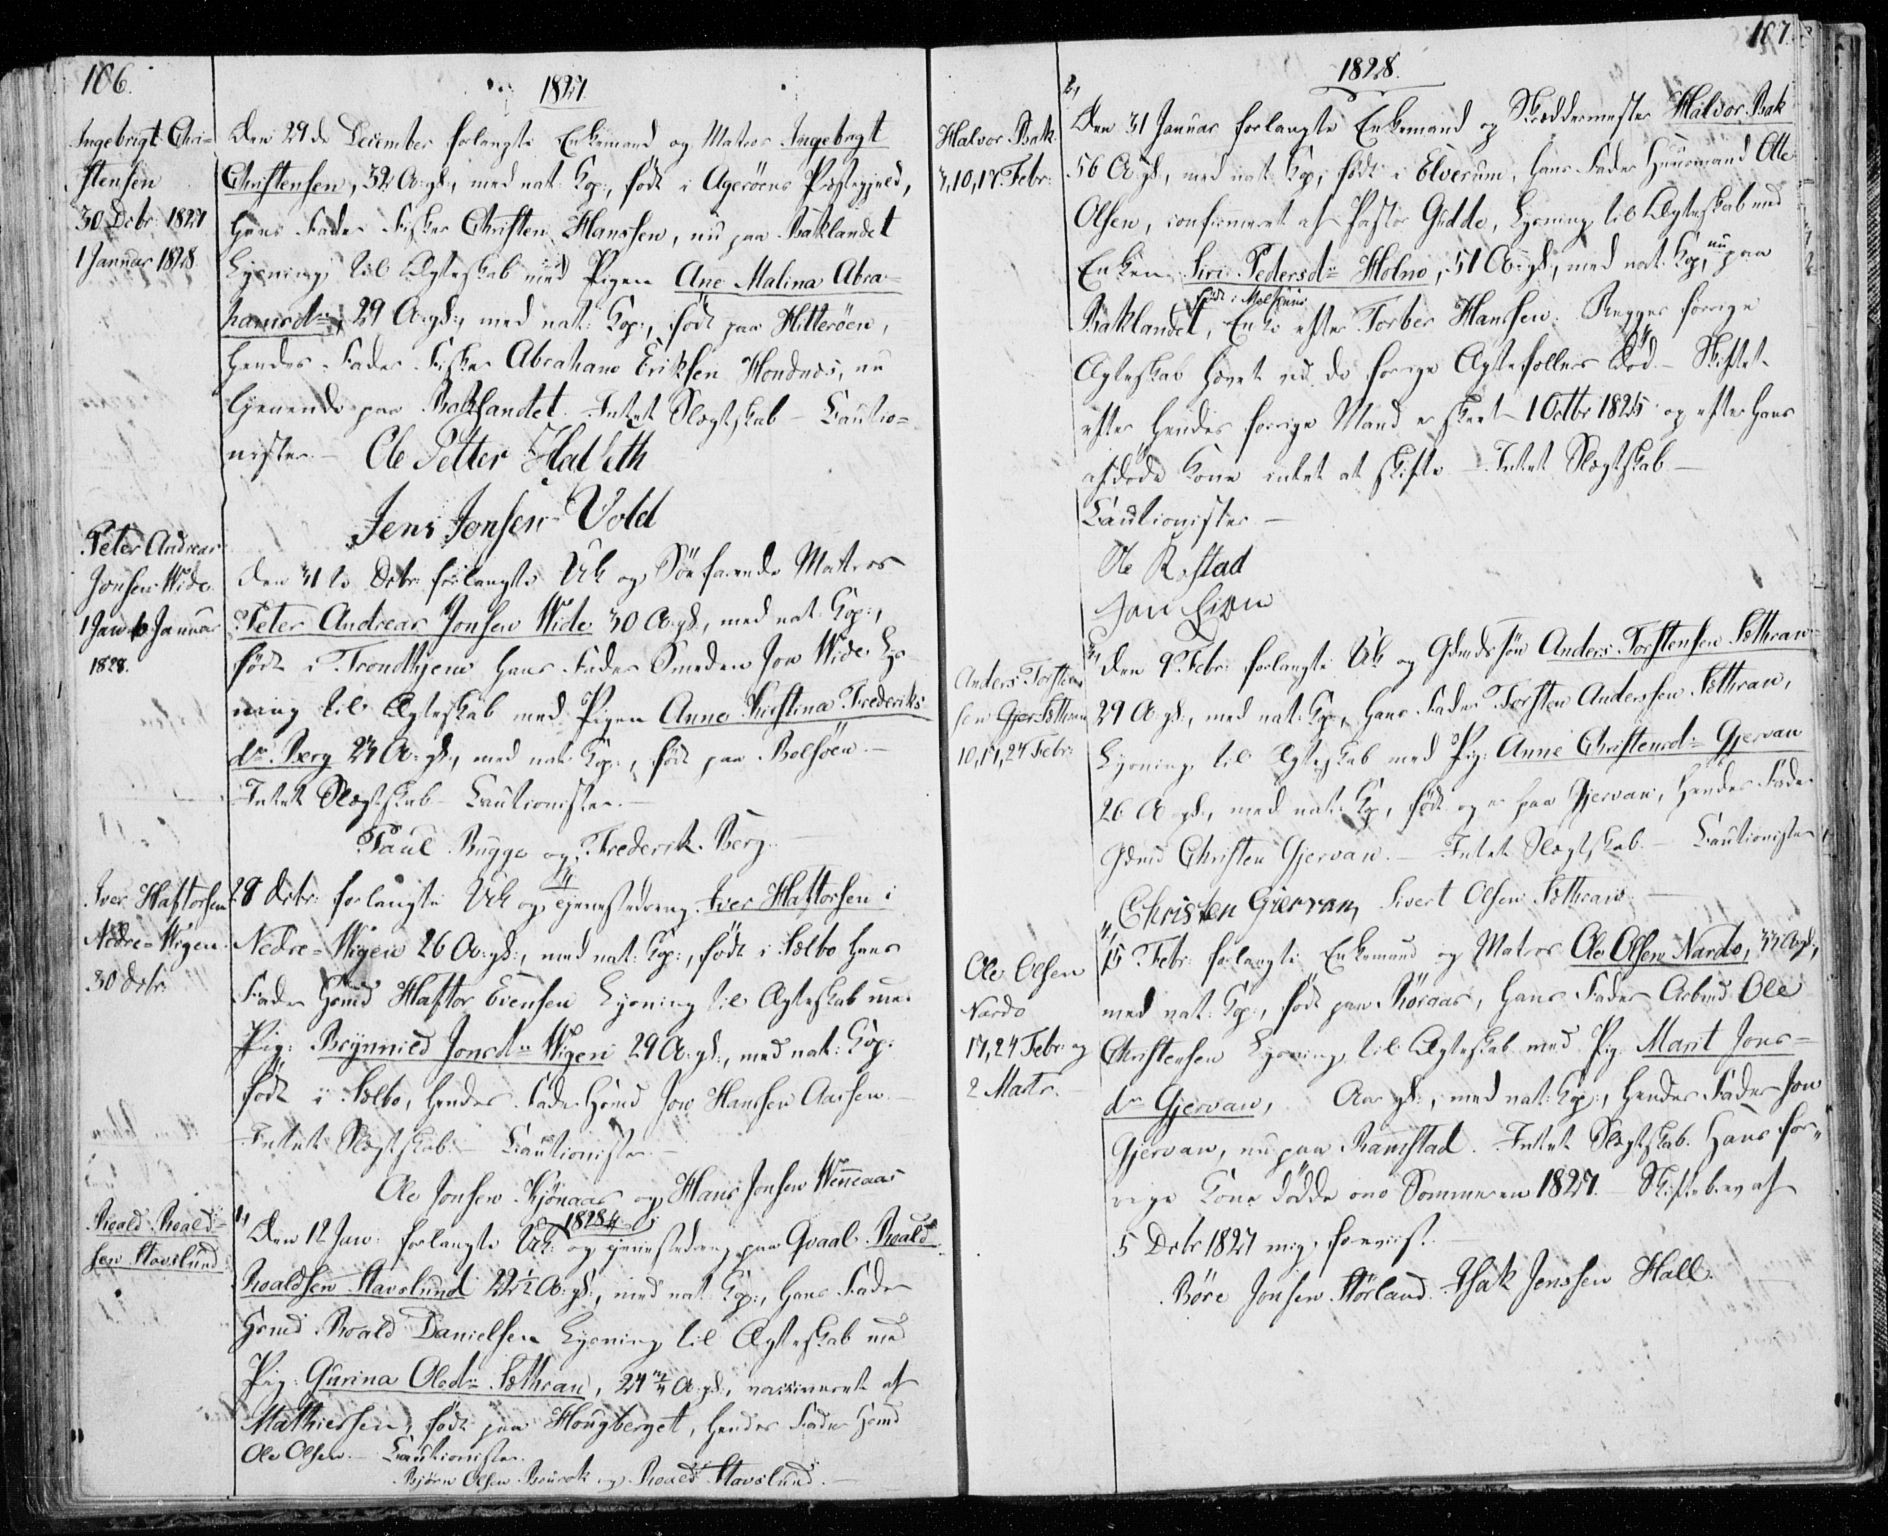 106.
1827
Ingebrigt Chri-
stensen
30 Decbr 1827
1 Januar 1828
Den 29de December forlangte Enkemand og Matros Ingebrigt
Christensen, 32 A: gl:, med nat: Kop:, født i Agerøens Præstegjeld,
hans Fader Fisker Christen Hanssen, nu paa Baklandet
Lysning til Ægteskab med Pigen Ane Malina Abra-
hamsdr, 29 A: gl:, med nat: Kop:, født paa Hitterøen,
hendes Fader Fisker Abraham Eriksen Hondnæs, nu
tjenende paa Baklandet. Intet Slægtskab – Cautio-
nister –
Ole Petter Hal
Jens Jonsen Vold
Peter Andreas
Jonsen Wide
1 Jan 6 Januar
1828.
Den 31te Decbr: forlangte Uk og Søefarende Matros
Peter Andreas Jonsen Wide 30 A: gl:, med nat: Kop:,
født i Trondhjem hans Fader Smeden Jon Wide Lys
ning til Ægteskab med Pigen Anne Kirstina Frederiks
dr Berg 24 A: gl:, med nat: Kop:, født paa Bolsøen. –
Intet Slægtskab – Cautionister. –
Paul Bugge og Frederik Berg.
Iver Haftorsen
Nedre-Wigen
30 Decbr
28 Decbr: forlangte Uk og tjenestedreng Iver Haftorsen i
Nedre-Wigen 26 A: gl:, med nat: Kop:, født i Selbo hans
Fader Gmd Haftor Evensen Lysning til Ægteskab med
Pig: Brynnild Jonsdr Wigen 29 A: gl:, med nat: Kop:
født i Selbo, hendes Fader Gmd Jon Hanssen Aassen. –
Intet Slægtskab. – Cautionister. –
Ole Jonsen Kjønaas og Hans Jonsen Wennaas
1828
Roald Roald-
sen Stavslund
1, Den 12 Jan: forlangte Uk: og tjenestedreng paa Qvaal Roald
Roaldsen Stavslund 22½ A: gl:, med nat: Kop:, hans Fader
Gmd Roald Danielsen Lysning til Ægteskab med
Pig: Gurina Olsdr Sæthran, 24 A: gl:, vaccineret af
Mathiessen, født paa Hougberget, hendes Fader Gmd
Ole Olsen. – Cautionister.
Bjørn Olsen og Roald Stavslund. –
107.
1828.
Halvor Bak
3, 10, 17. Febr:
2, Den 31 Januar forlangte Enkemand og Skræddermester Halvor Bak
56 A: gl:, med nat: Kop:, født i Elverum, hans Fader Huusmand Ole
Olsen, confirmeret af Pastor Gedde, Lysning til Ægteskab med
Enken Siri Pedersdr Holmo, 51 A: gl:, med nat: Kop:, nu paa
født i Melhuus
Baklandet, Enke efter Torber Hanssen. Begges forrige
Ægteskab hævet ved de forrige Ægtefællers Død. – Skiftet
efter hendes forrige Mand er skeet 1 Octbr 1825 og efter hans
afdøde Kone intet at skifte. – Intet Slægtskab –
Cautionister –
Ole Rostad
Anders Torsten
sen Sæthran
10, 17, 24 Febr:
3, Den 9 Febr: forlangte Uk og Gmdssøn Anders Torstensen Sæthran
29 A: gl:, med nat: Kop:, hans Fader Torsten Anderssen Sæthran,
Lysning til Ægteskab med Pig: Anne Christensdr Gjervan
26 A: gl:, med nat: Kop:, født og er paa Gjervan, hendes Fader
Gdmd Christen Gjervan. – Intet Slægtskab. – Cautionister
Christen Gjervan, Sivert Olsen Sæthran –
Ole Olsen
Nardo
17, 24 Febr: og
2 Marts.
4, 15 Febr: forlangte Enkemand og Matros Ole Olsen Nardo, 33 A: gl:,
med nat: Kop:, født paa Røraas, hans Fader Arbmd Ole
Christensen Lysning til Ægteskab med Pig: Marit Jons-
dr Gjervan, Aar gl:, med nat: Kop:, hendes Fader Jon
Gjervan, nu paa Ramstad. Intet Slægtskab. Hans for-
rige Kone døde om Sommeren 1827. – Skiftebrev af
5 Decbr 1827 mig foreviist. –
Børe Jonsen Størland. Isak Jenssen Hall.